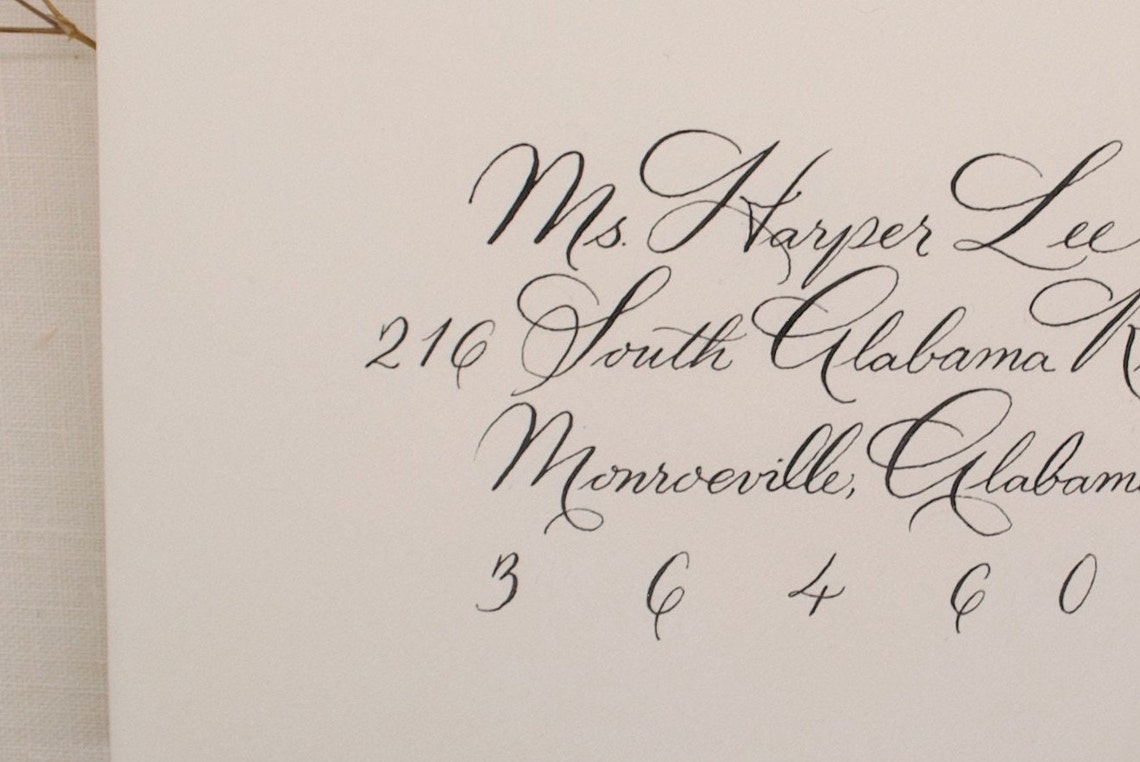 Ms. Harper Lee
216 South Alabama
Monroeville, Alabama
3 6 4 6 0